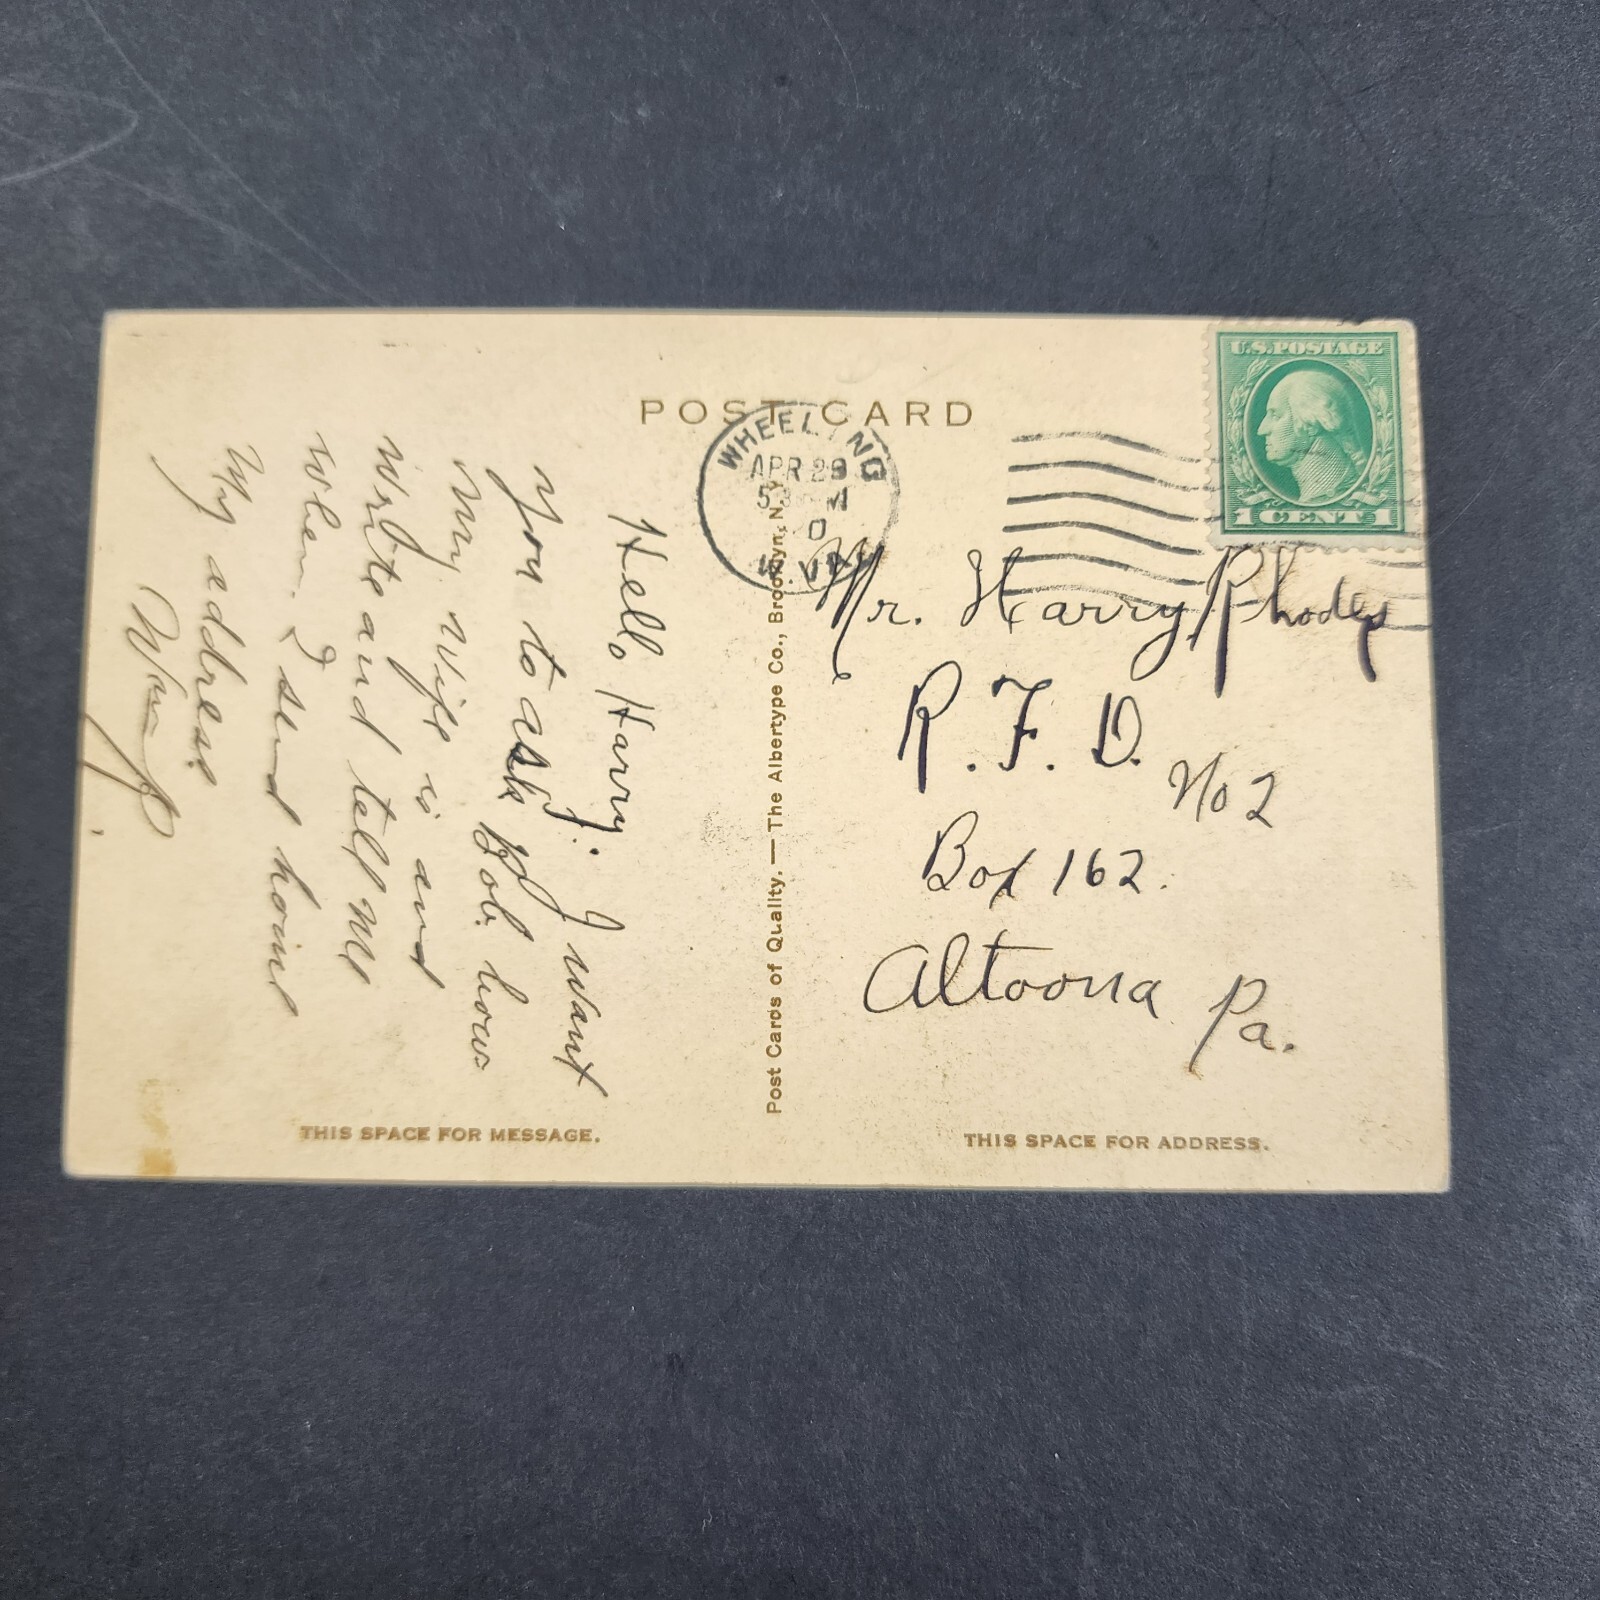 POST CARD
U.S. POSTAGE
1 CENT 1
WHEELING
APR 29
W. VA.
Mr. Harry Rhodes
R. F. D.
No 2
Box 162.
Altoona Pa.
Hello Harry: I want
you to ask Bob. how
my wife is and
write and tell me
when I send home
My address
Post Cards of Quality. — The Albertype Co., Brooklyn, N.Y.
THIS SPACE FOR MESSAGE.
THIS SPACE FOR ADDRESS.